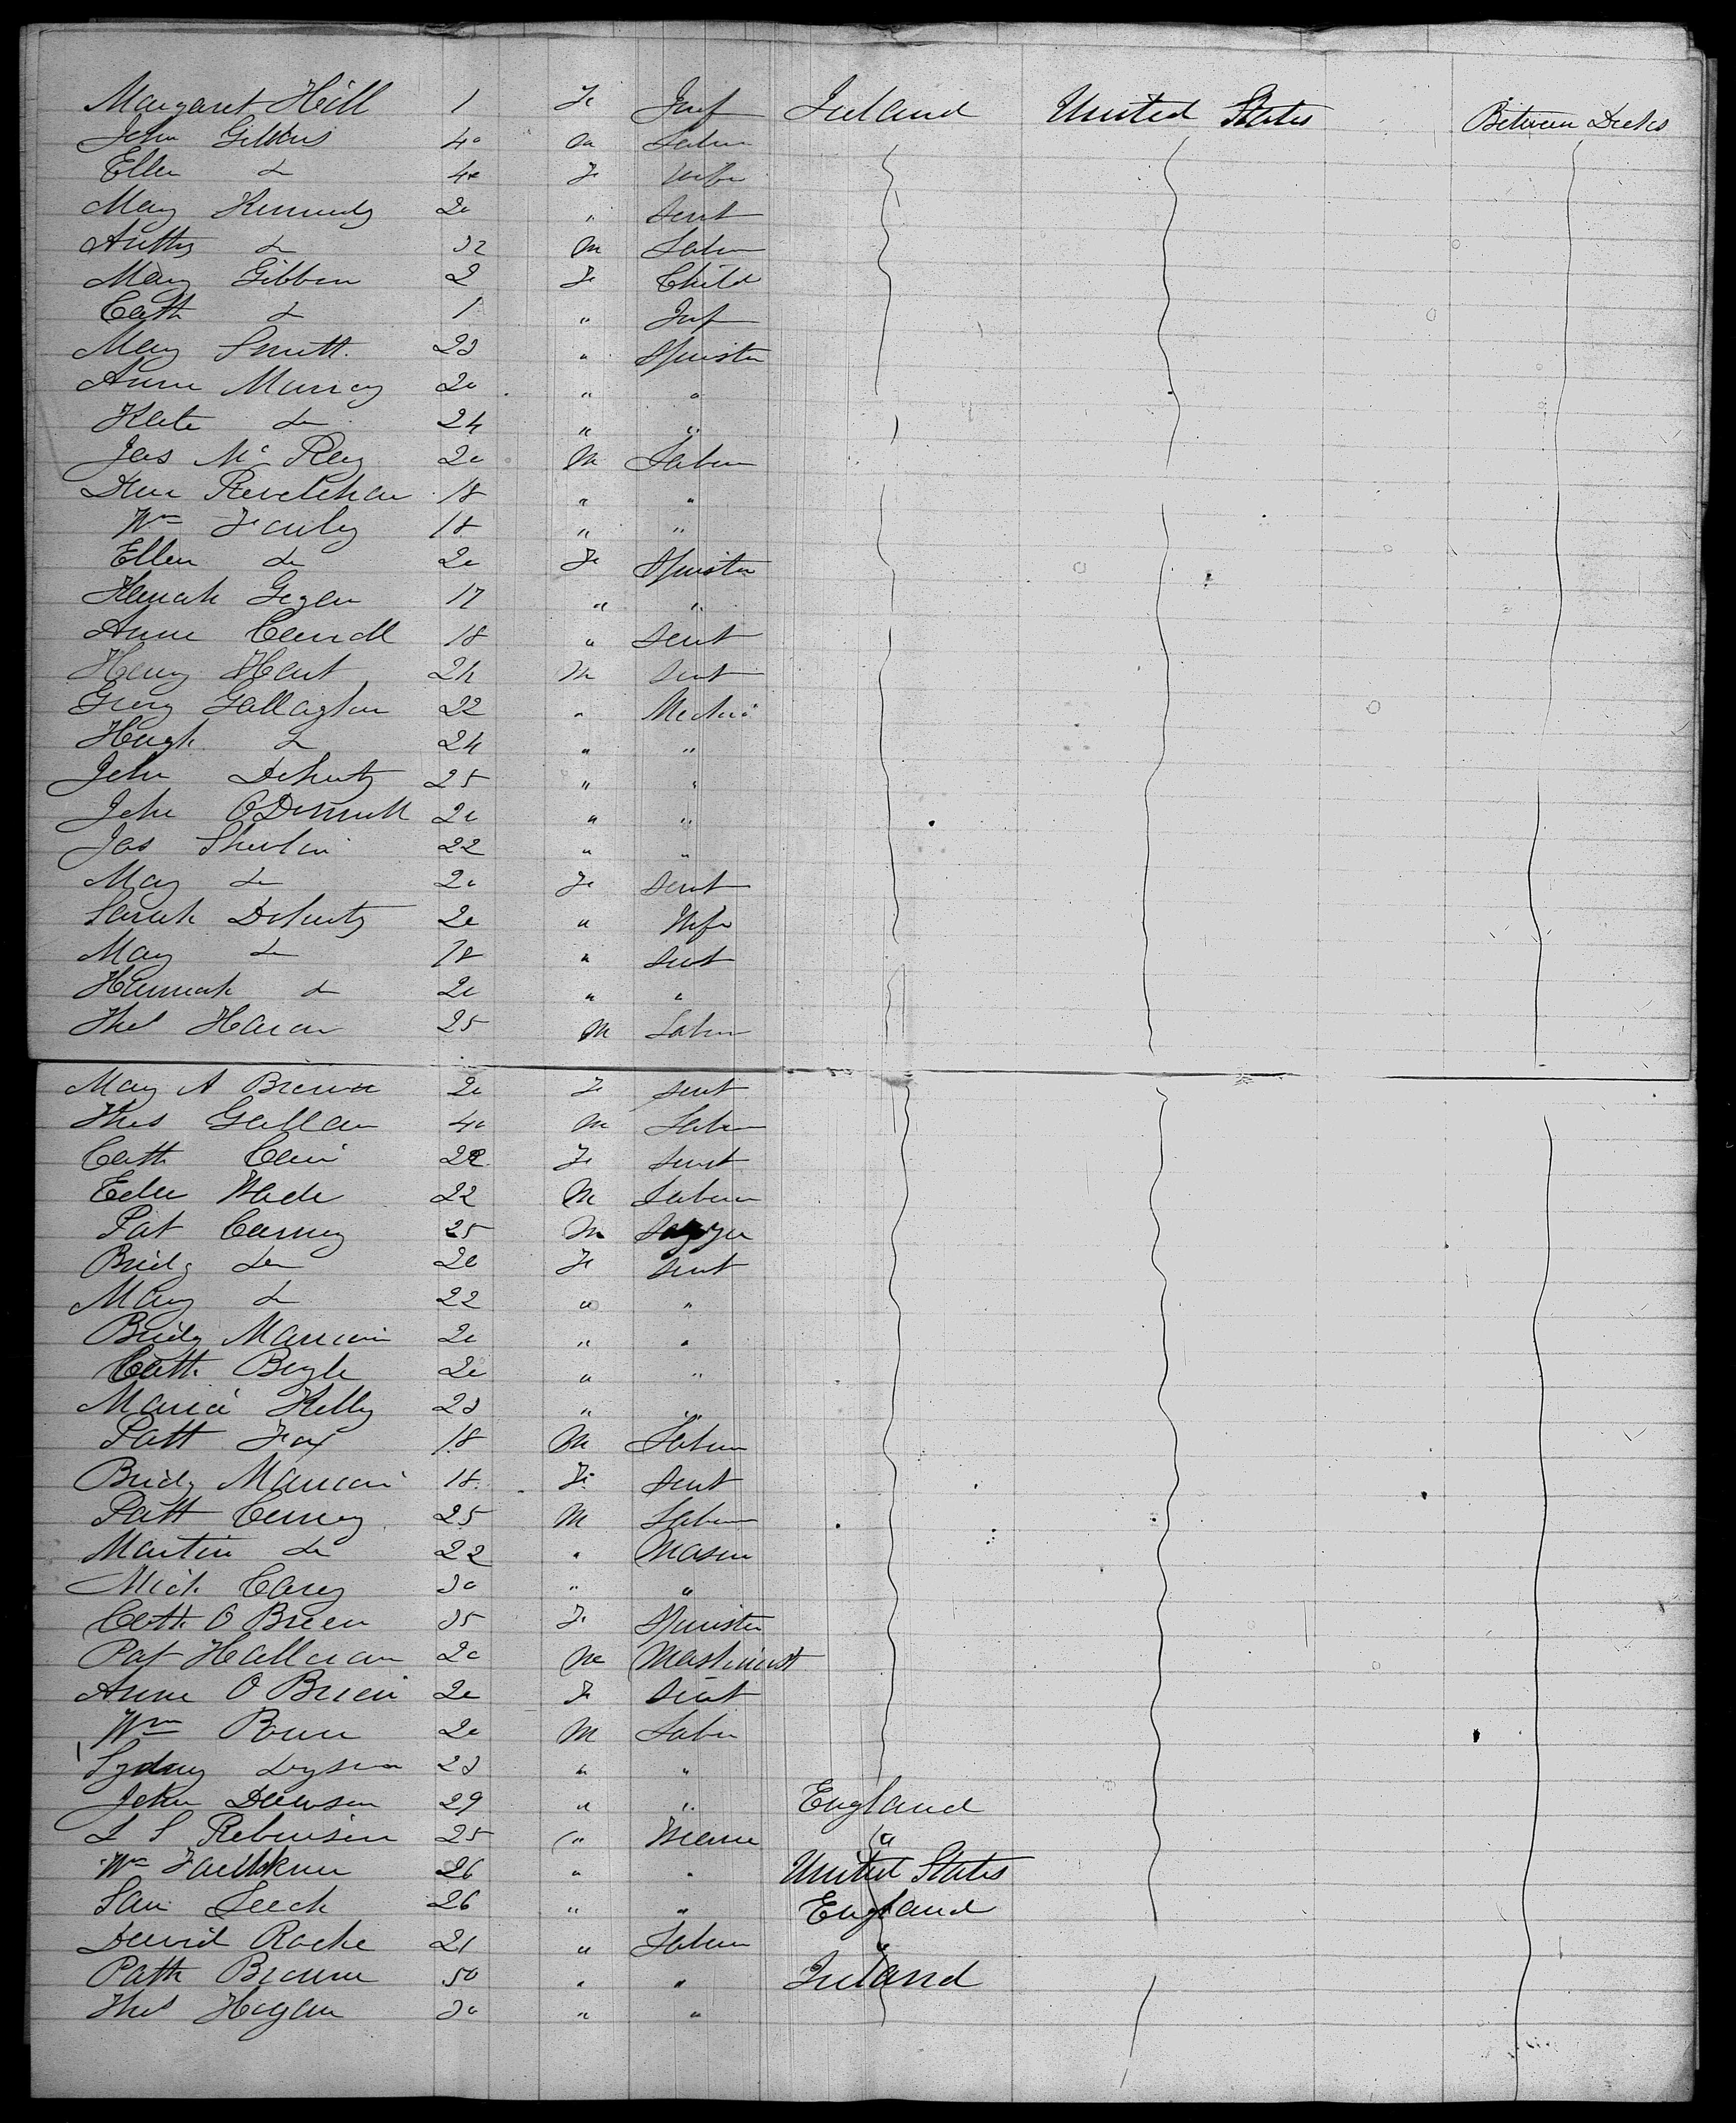 Margaret Hill 1 Fe Inf Ireland United States Between Decks
John Gibbins 40 m Labr
Ellen do 40 Fe wife
Mary Kennedy 20 " Servt
Anthy do 32 M Labr
Mary Gibbon 2 Fe Child
Cath do 1 " Inf
Mary Smith 23 " Spinster
Anne Murray 20 " "
Kate do 24 " "
Jas Mc Ray 20 M Labr
18 " "
Wm Fauley 18 " "
Ellen do 20 Fe Spinster
Hanah 17 " "
Anne 18 " Servt
Henry Hart 24 M Servt
Gallagher 22 "
Hugh do 24 " "
John Dohurty 25 " "
John O'Donnell 20 " "
Jas Shevlin 22 " "
Mary do 20 Fe Servt
Sarah Dohurty 20 " Wife
May do 18 " Servt
Hannah do 20 " "
Thos Haran 25 M Labr
Mary A Brown 20 Fe Servt
Thos Gallan 40 M Labr
Cath Cain 22 Fe Servt
Wade 22 M Labour
Pat Carney 25 M
Bridg do 20 Fe Servt
Mary do 22 " "
Bridg Mannion 20 " "
Cath Boyle 20 " "
Maria Kelly 23 " "
Patt Fox 18 M Labour
Bridg Mannion 18 Fe Servt
Patt Carney 25 M Labr
Martin do 22 " Mason
Mick Carey 30 " "
Cath O Brien 35 Fe Spinster
Pat Halloran 20 M Mashinist
Anne O Brien 20 Fe Servt
Wm 20 M Labr
Sydney Dyson 23 " "
John Dawson 29 " " England
L S Robinson 25 " "
Wm Faulkner 26 " " United States
Sam Leech 26 " " England
David Roche 21 " Labour "
Patk Browne 50 " " Ireland
Thos Hogan 30 " "